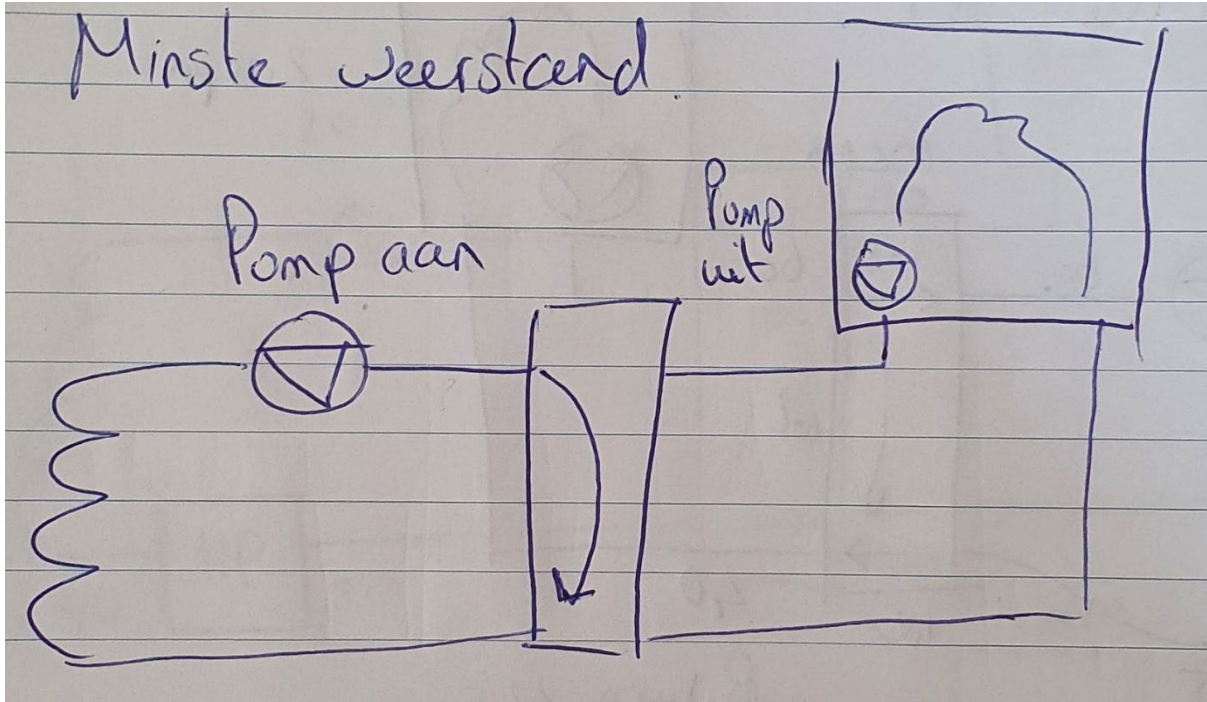 Minste weerstand.
Pomp aan
Pomp
uit